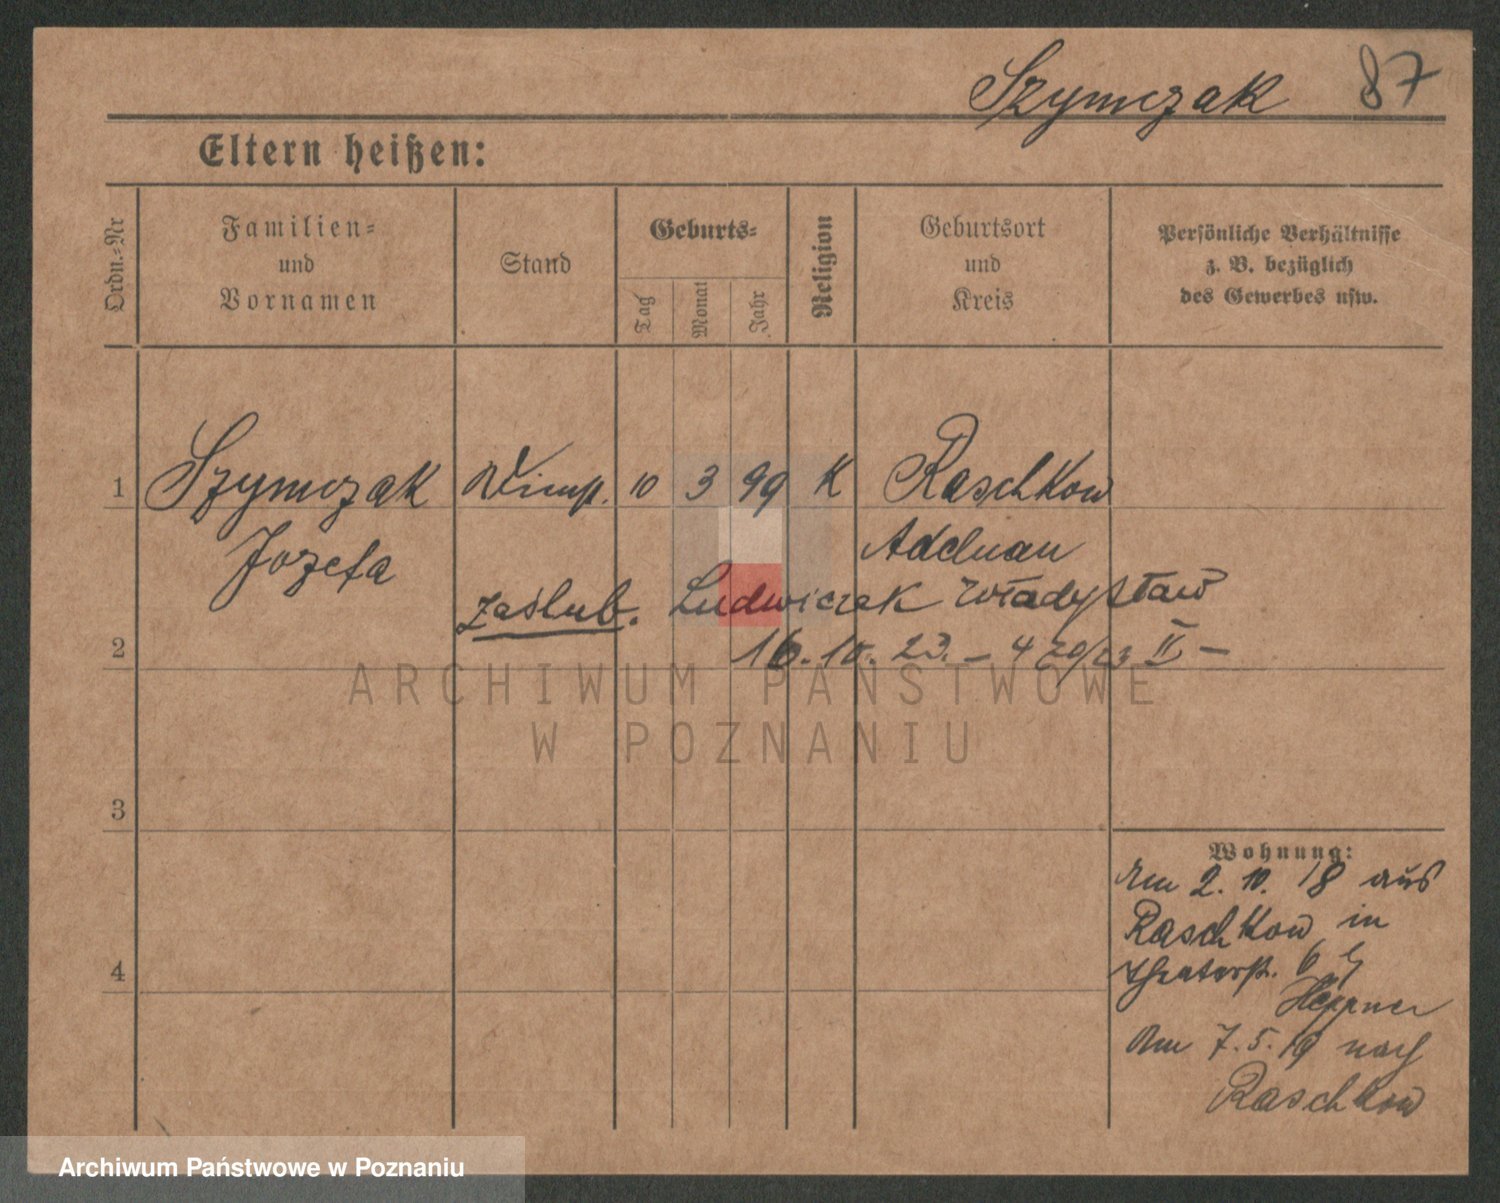 Szymczak 87
Eltern heißen:
Ordn.-Nr
Familien-
und
Vornamen
Stand
Geburts-
Tag
Monat
Jahr
Religion
Geburtsort
und
Kreis
Persönliche Verhältnisse
z. B. bezüglich
des Gewerbes usw.
1 Szymczak 10 3 99 K Raschkow
Jozefa Adelnau
zaślub. Ludwiczak Władysław
2 16.10.23. – 4 II –
ARCHIWUM PAŃSTWOWE
W POZNANIU
3
Wohnung:
Am 2. 10. 18 aus
Raschkow in
4 Theaterst. 6
Heppner
Am 7. 5. 19 nach
Raschkow
Archiwum Państwowe w Poznaniu